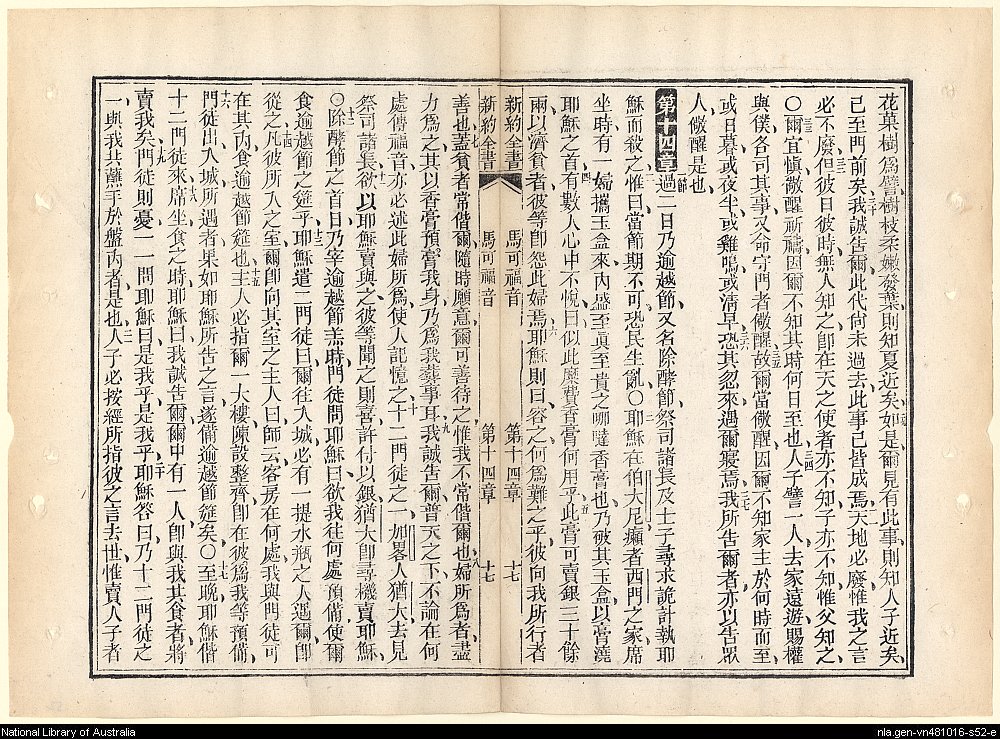 花菓樹爲譬樹枝柔嫩發葉則知夏近矣如是爾見有此事則知人子近矣
己至門前矣我誠告爾此代尚未過去此事己皆成焉天地必廢惟我之言
必不廢但彼日彼時無人知之卽在天之使者亦不知子亦不知惟父知之
〇爾宜愼儆醒祈禱因爾不知其時何日至也人子譬一人去家遠遊賜權
與僕各司其事又命守門者儆醒故爾當儆醒因爾不知家主於何時而至
或日暮或夜半或雞鳴或淸早恐其忽來遇爾寢焉我所告爾者亦以告眾
人儆醒是也
第十四章 一節 過二日乃逾越節又名除酵節祭司諸長及士子尋求詭計執耶
穌而殺之惟曰當節期不可恐民生亂〇耶穌在伯大尼癩者西門之家席
坐時有一婦攜玉盒來內盛至眞至貴之哪噠香膏也乃破其玉盒以膏澆
耶穌之首有數人心中不悅曰似此糜費香膏何用乎此膏可賣銀三十餘
兩以濟貧者彼等卽怨此婦焉耶穌則曰容之何爲難之乎彼向我所行者
新約全書 馬可福音 第十四章 十七
新約全書 馬可福音 第十四章 十七
善也蓋貧者常偕爾隨時願意爾可善待之惟我不常偕爾也婦所爲者盡
力爲之其以香膏預膏我身乃爲我葬事耳我誠告爾普天之下不論在何
處傳福音亦必述此婦所爲使人記憶之十二門徒之一加畧人猶大去見
祭司諸長欲以耶穌賣與之彼等聞之則喜許付以銀猶大卽尋機賣耶穌
〇除酵節之首日乃宰逾越節羔時門徒問耶穌曰欲我往何處預備使爾
食逾越節之筵乎耶穌遣二門徒曰爾往入城必有一提水瓶之人遇爾卽
從之凡彼所入之室爾卽向其室之主人曰師云客房在何處我與門徒可
在其內食逾越節筵也主人必指爾一大樓陳設整齊卽在彼爲我等預備
門徒出入城所遇者果如耶穌所告之言遂備逾越節筵矣〇至晚耶穌偕
十二門徒來席坐食之時耶穌曰我誠告爾爾中有一人卽與我共食者將
賣我矣門徒則憂一一問耶穌曰是我乎是我乎耶穌答曰乃十二門徒之
一與我共蘸手於盤內者是也人子必按經所指彼之言去世惟賣人子者
National Library of Australia
nla.gen-vn481016-s52-e